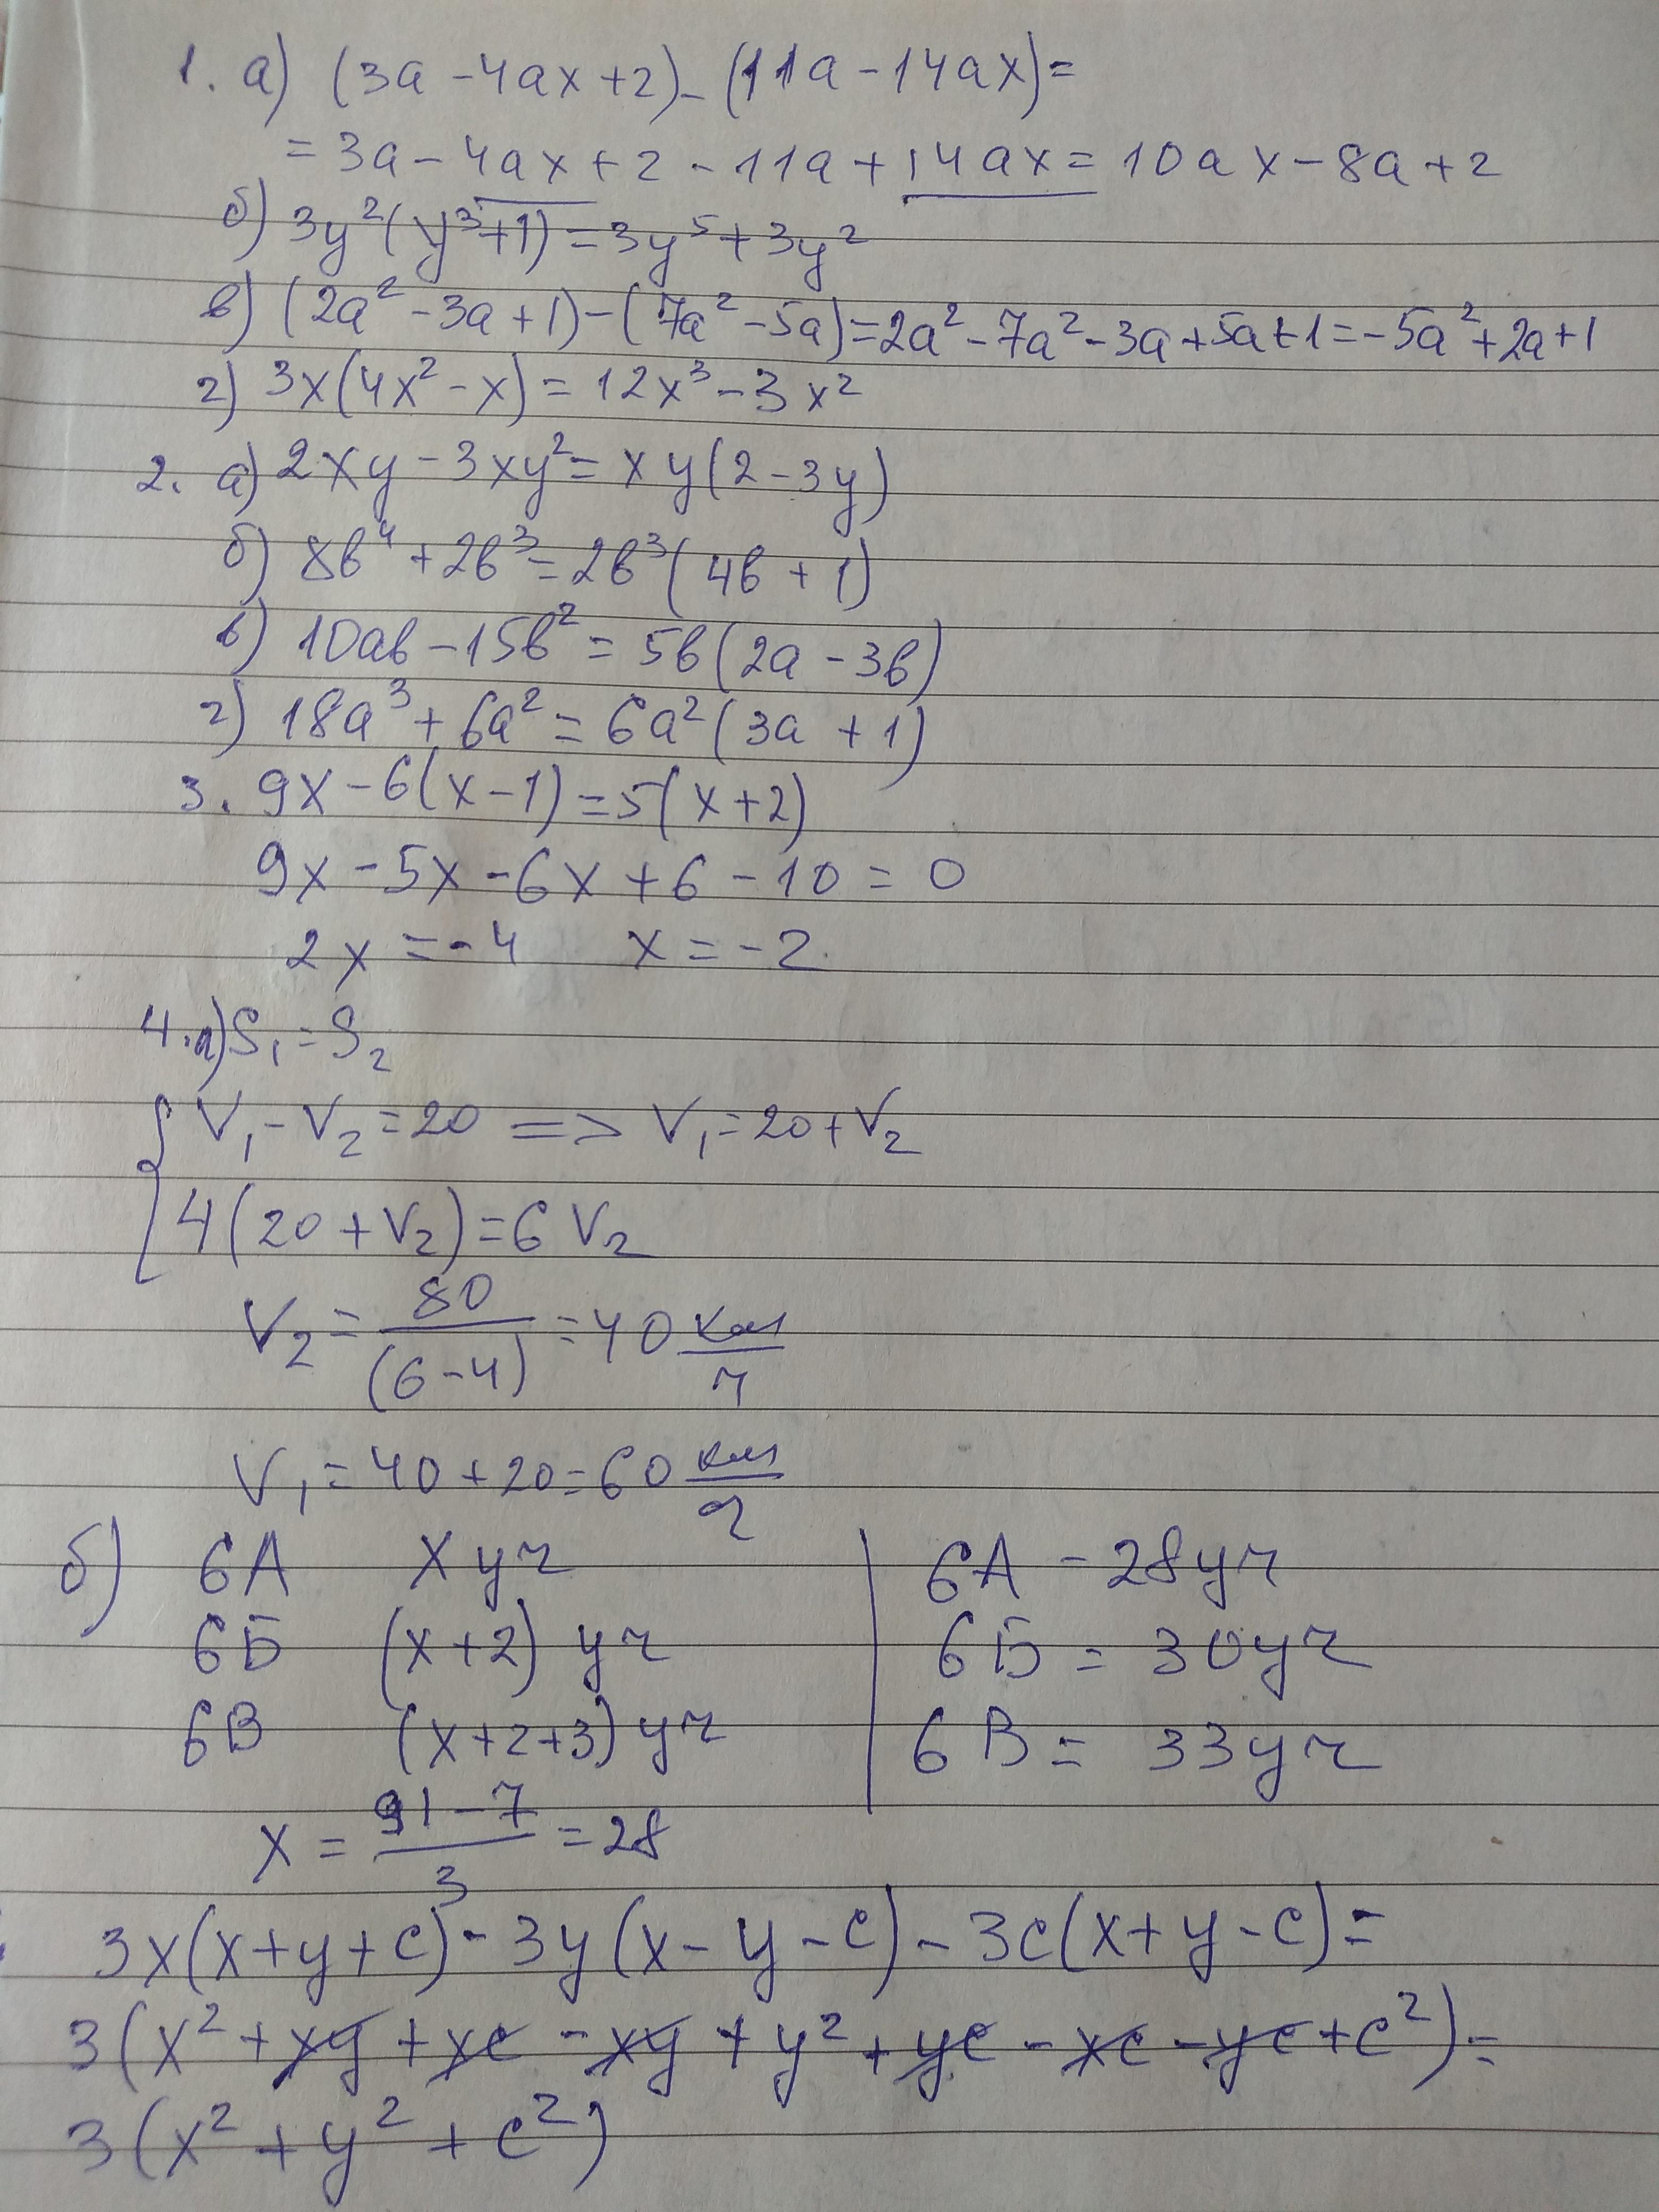 1. а) (3a - 4ax + 2) - (11a - 14ax) =
= 3a - 4ax + 2 - 11a + 14ax = 10ax - 8a + 2
б) 3y²(y³+1) = 3y⁵ + 3y²
в) (2a² - 3a + 1) - (7a² - 5a) = 2a² - 7a² - 3a + 5a + 1 = -5a² + 2a + 1
г) 3x(4x² - x) = 12x³ - 3x²
2. а) 2xy - 3xy² = xy(2 - 3y)
б) 8b⁴ + 2b³ = 2b³(4b + 1)
в) 10ab - 15b² = 5b(2a - 3b)
г) 18a³ + 6a² = 6a²(3a + 1)
3. 9x - 6(x - 1) = 5(x + 2)
9x - 5x - 6x + 6 - 10 = 0
2x = -4 x = -2
4. а) S₁ = S₂
{ V₁ - V₂ = 20 => V₁ = 20 + V₂
4(20 + V₂) = 6V₂
V₂ = 80/(6-4) = 40 км/ч
V₁ = 40 + 20 = 60 км/ч
б) 6А x уч | 6А - 28 уч
6Б (x+2) уч | 6Б = 30 уч
6В (x+2+3) уч | 6В = 33 уч
x = 91-7/3 = 28
3x(x+y+c) - 3y(x-y-c) - 3c(x+y-c) =
3(x² + xy + xc - xy + y² + yc - xc - yc + c²) =
3(x² + y² + c²)